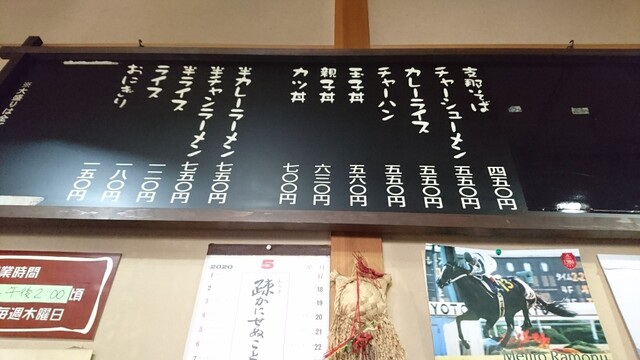 支那そば 四五〇円
チャーシューメン 五五〇円
カレーライス 五五〇円
チャーハン 五五〇円
玉子丼 五六〇円
親子丼 六三〇円
カツ丼 七〇〇円
半カレーラーメン 七五〇円
半チャンラーメン 七五〇円
半ライス 一二〇円
ライス 一八〇円
おにぎり 一五〇円
※大盛りは全
業時間
午後2:00頃
毎週木曜日
2020 5
疎かにせぬこと
Mejiro Ramonu